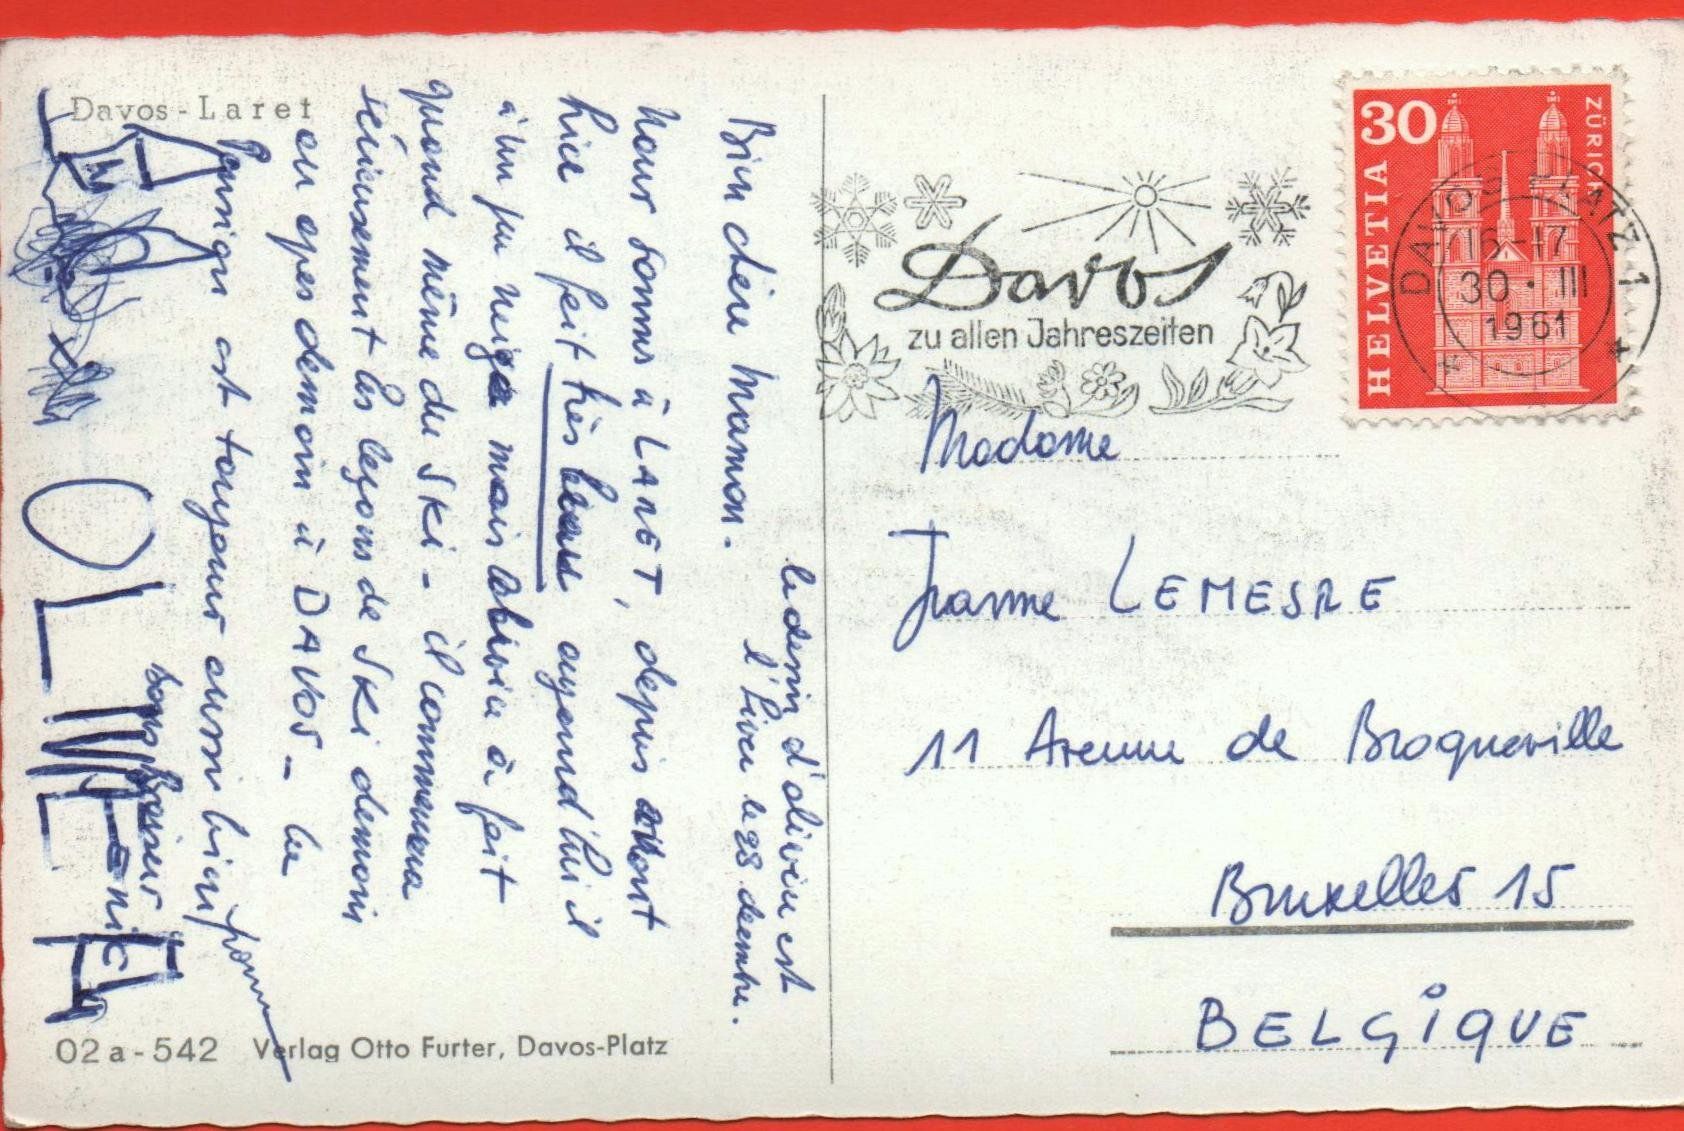 Davos-Laret
Bien chère Maman.
Nous sommes à LARET, depuis
hier il fait très beau aujourd'hui il
a un peu neigé mais Olivier a fait
quand même du SKi - il commencera
sérieusement les leçons de SKi demain
ou apes demain à DAVOS - la
Pension est toujours aussi bien
bons Baisers
OLIVIER
le dessin d'olivier est
l'hiver le 28 decembre.
02 a - 542 Verlag Otto Furter, Davos-Platz
Davos
zu allen Jahreszeiten
HELVETIA
30
ZÜRICH
DAVOS PLATZ 1
16-17
30. III
1961
Madame
Jeanne LEMESRE
11 Avenue de Broqueville
Bruxelles 15
BELGIQUE